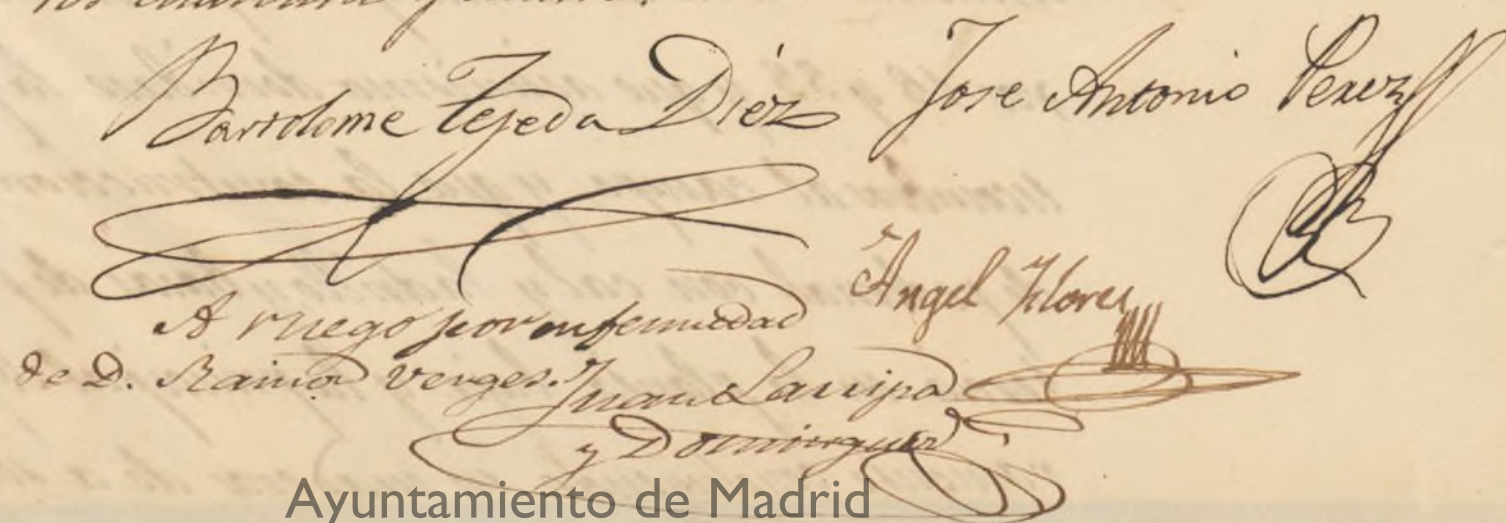 Bartolome Tejeda Diéz Jose Antonio Perez
Angel Flores
A ruego por enfermedad
de D. Ramon Verges.
Juan Larripa
y Dominguez
Ayuntamiento de Madrid